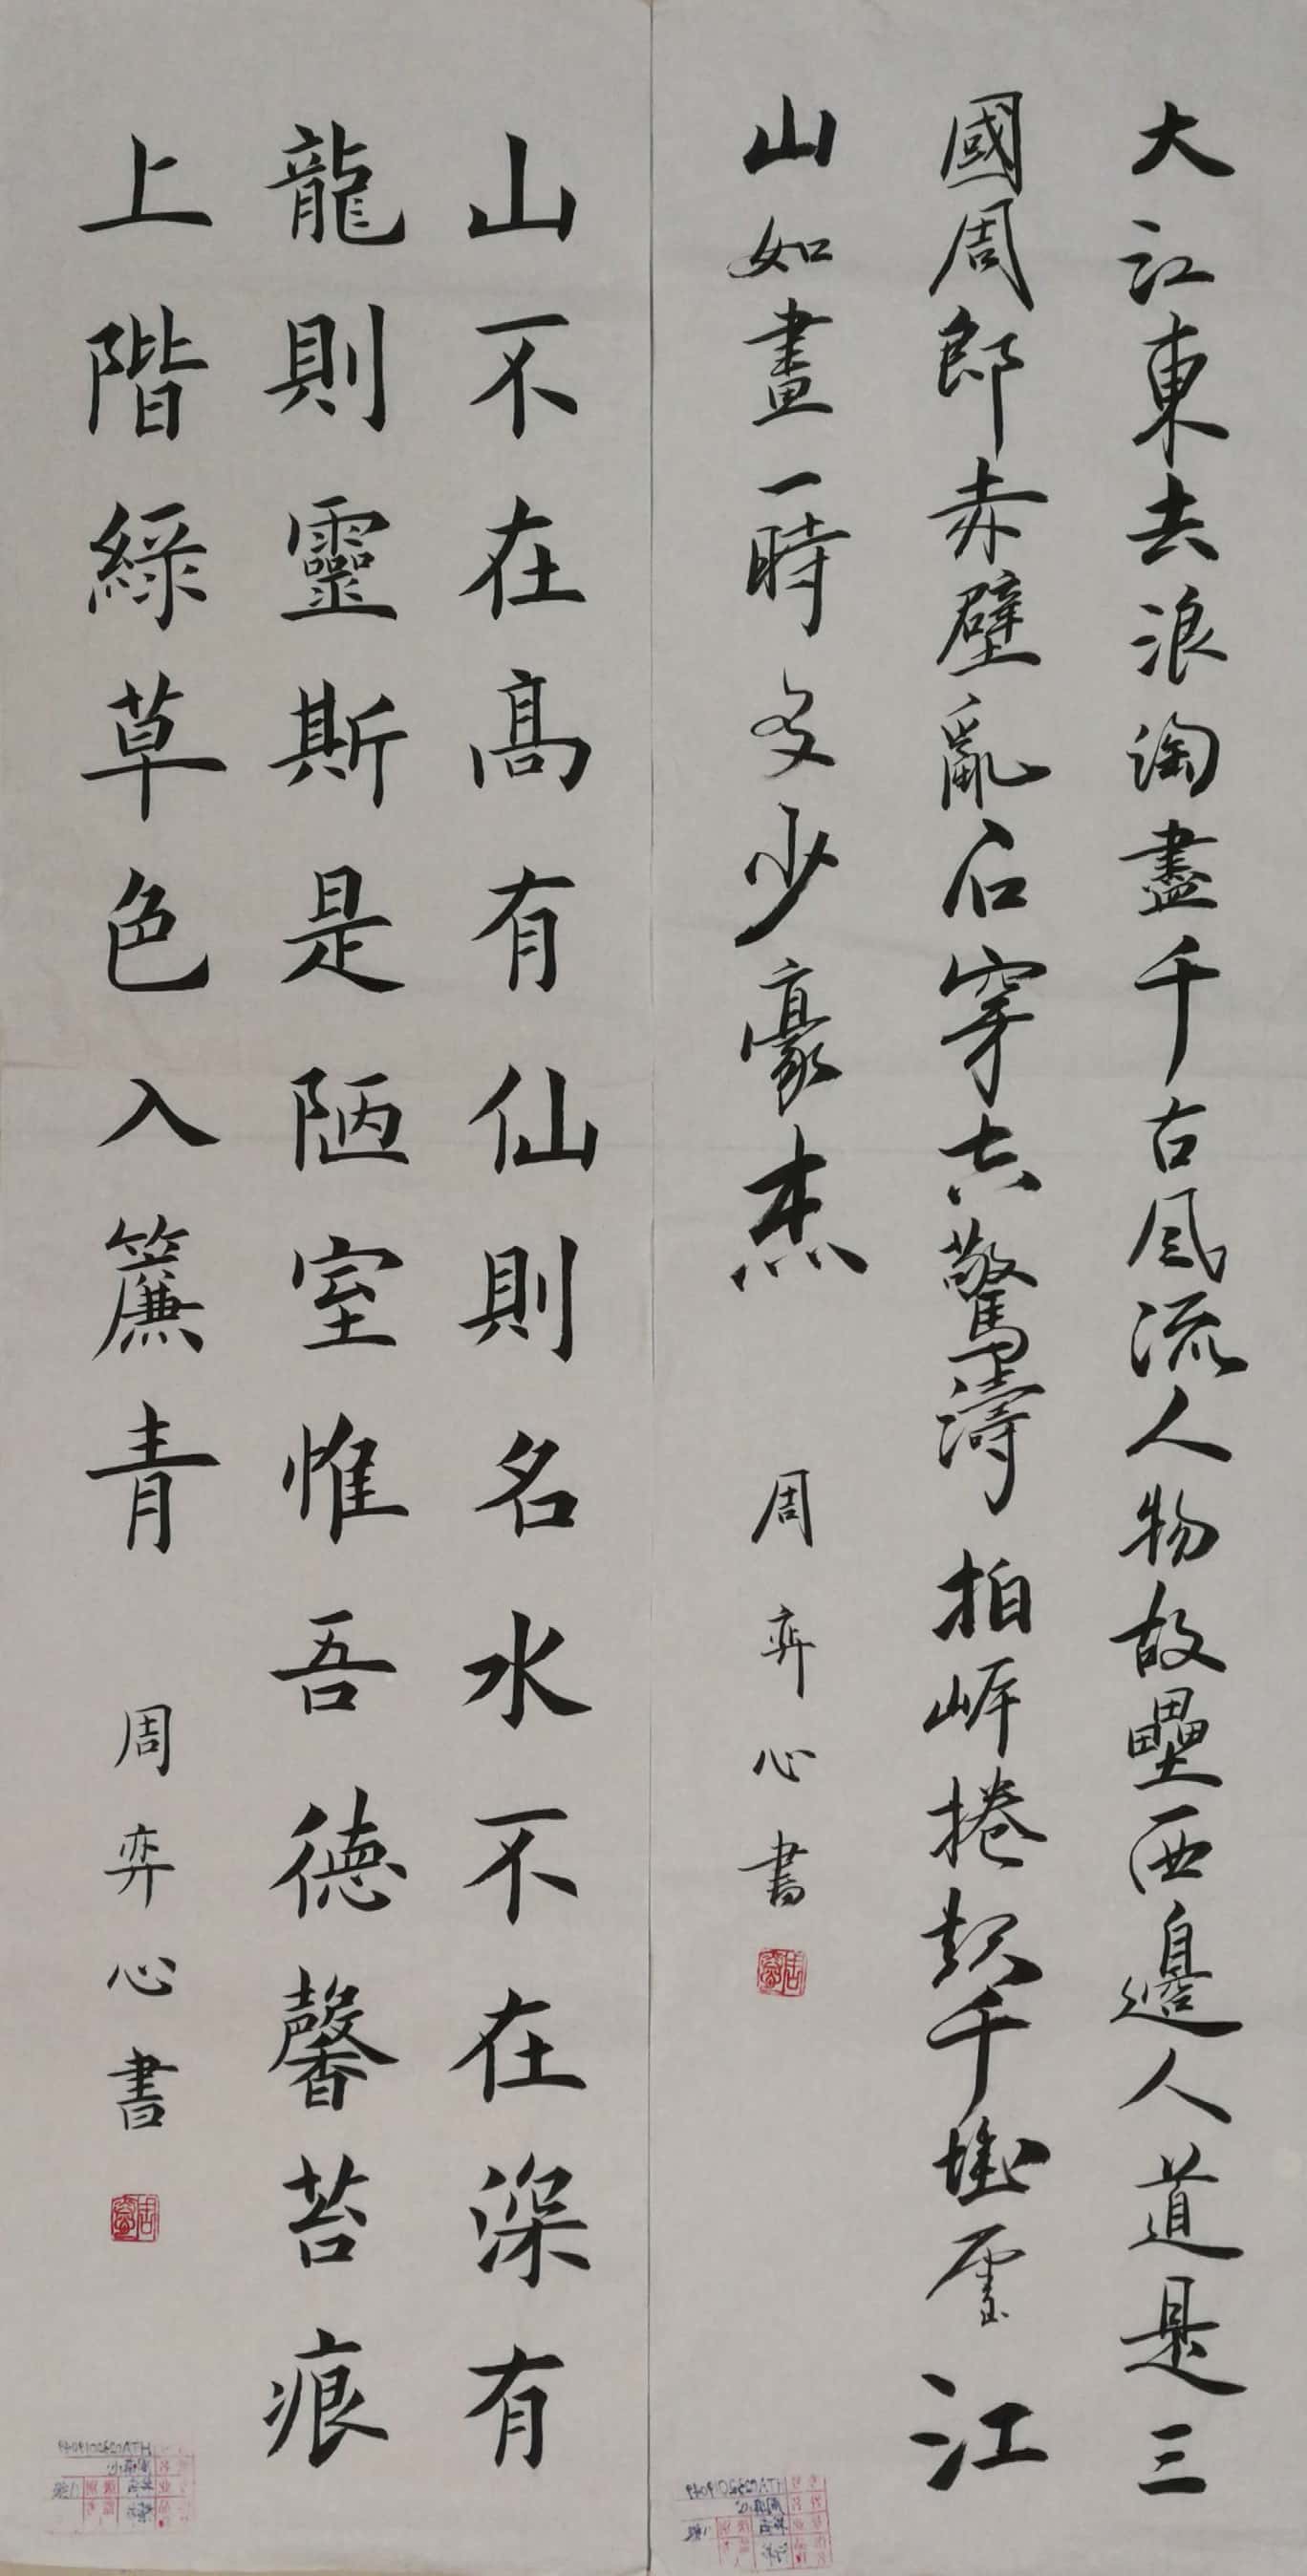 大江東去浪淘盡千古風流人物故壘西邊人道是三
國周郎赤壁亂石穿空驚濤拍岸捲起千堆雪江
山如畫一時多少豪杰
周弈心書
山不在高有仙則名水不在深有
龍則靈斯是陋室惟吾德馨苔痕
上階綠草色入簾青
周弈心書